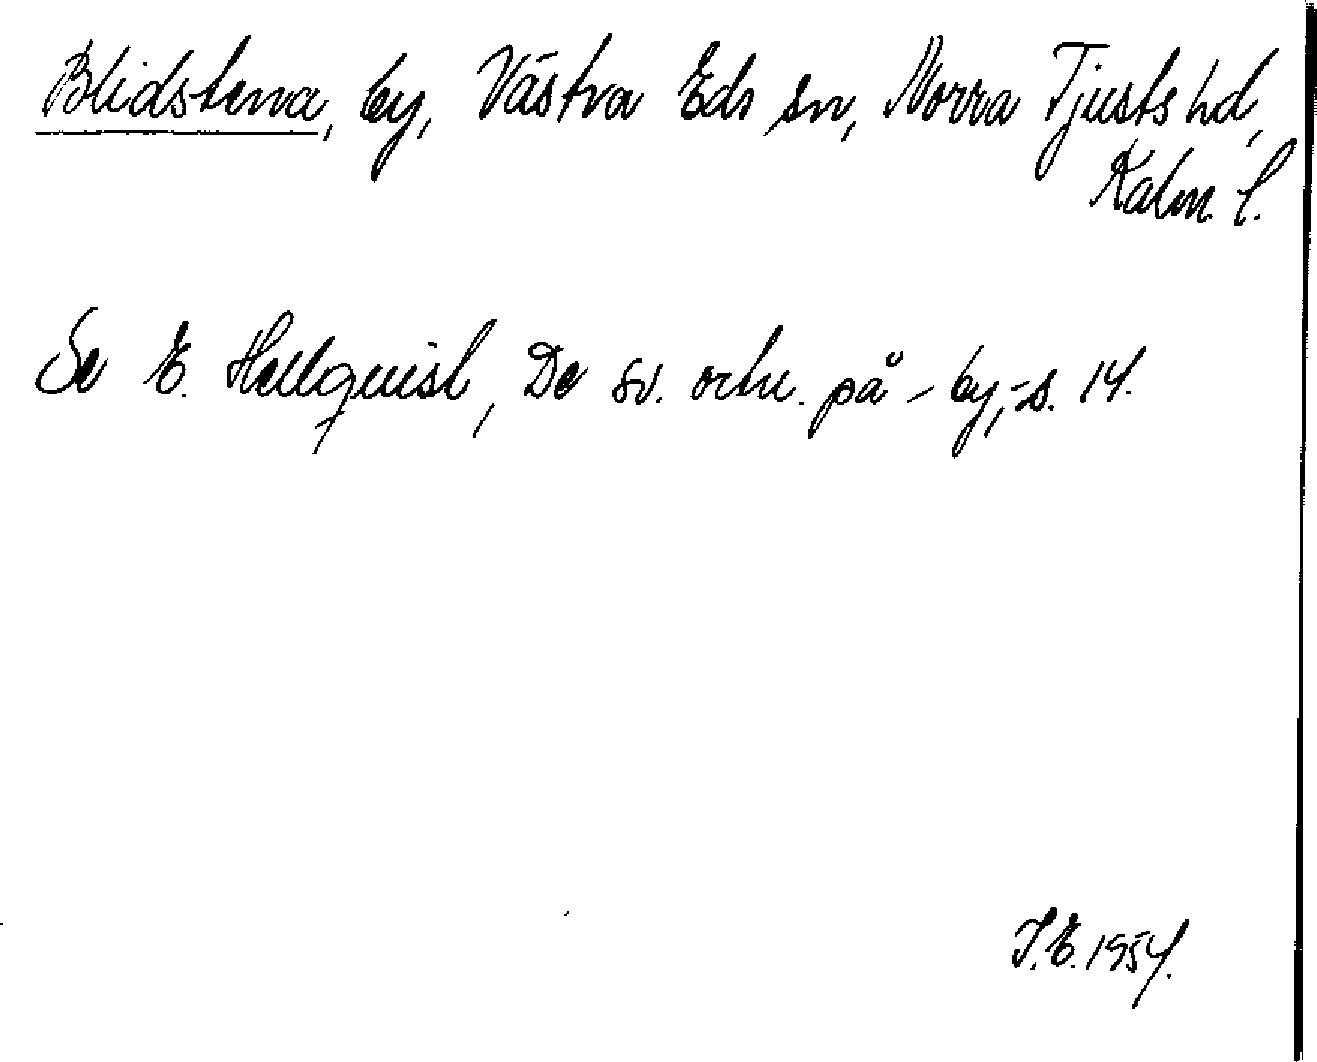 Blidstena, by, Västra Eds sn, Norra Tjusts hd,
Kalm. l.
Se E. Hellquist, De sv. ortn. på -by, s. 14.
I.E. 1954.